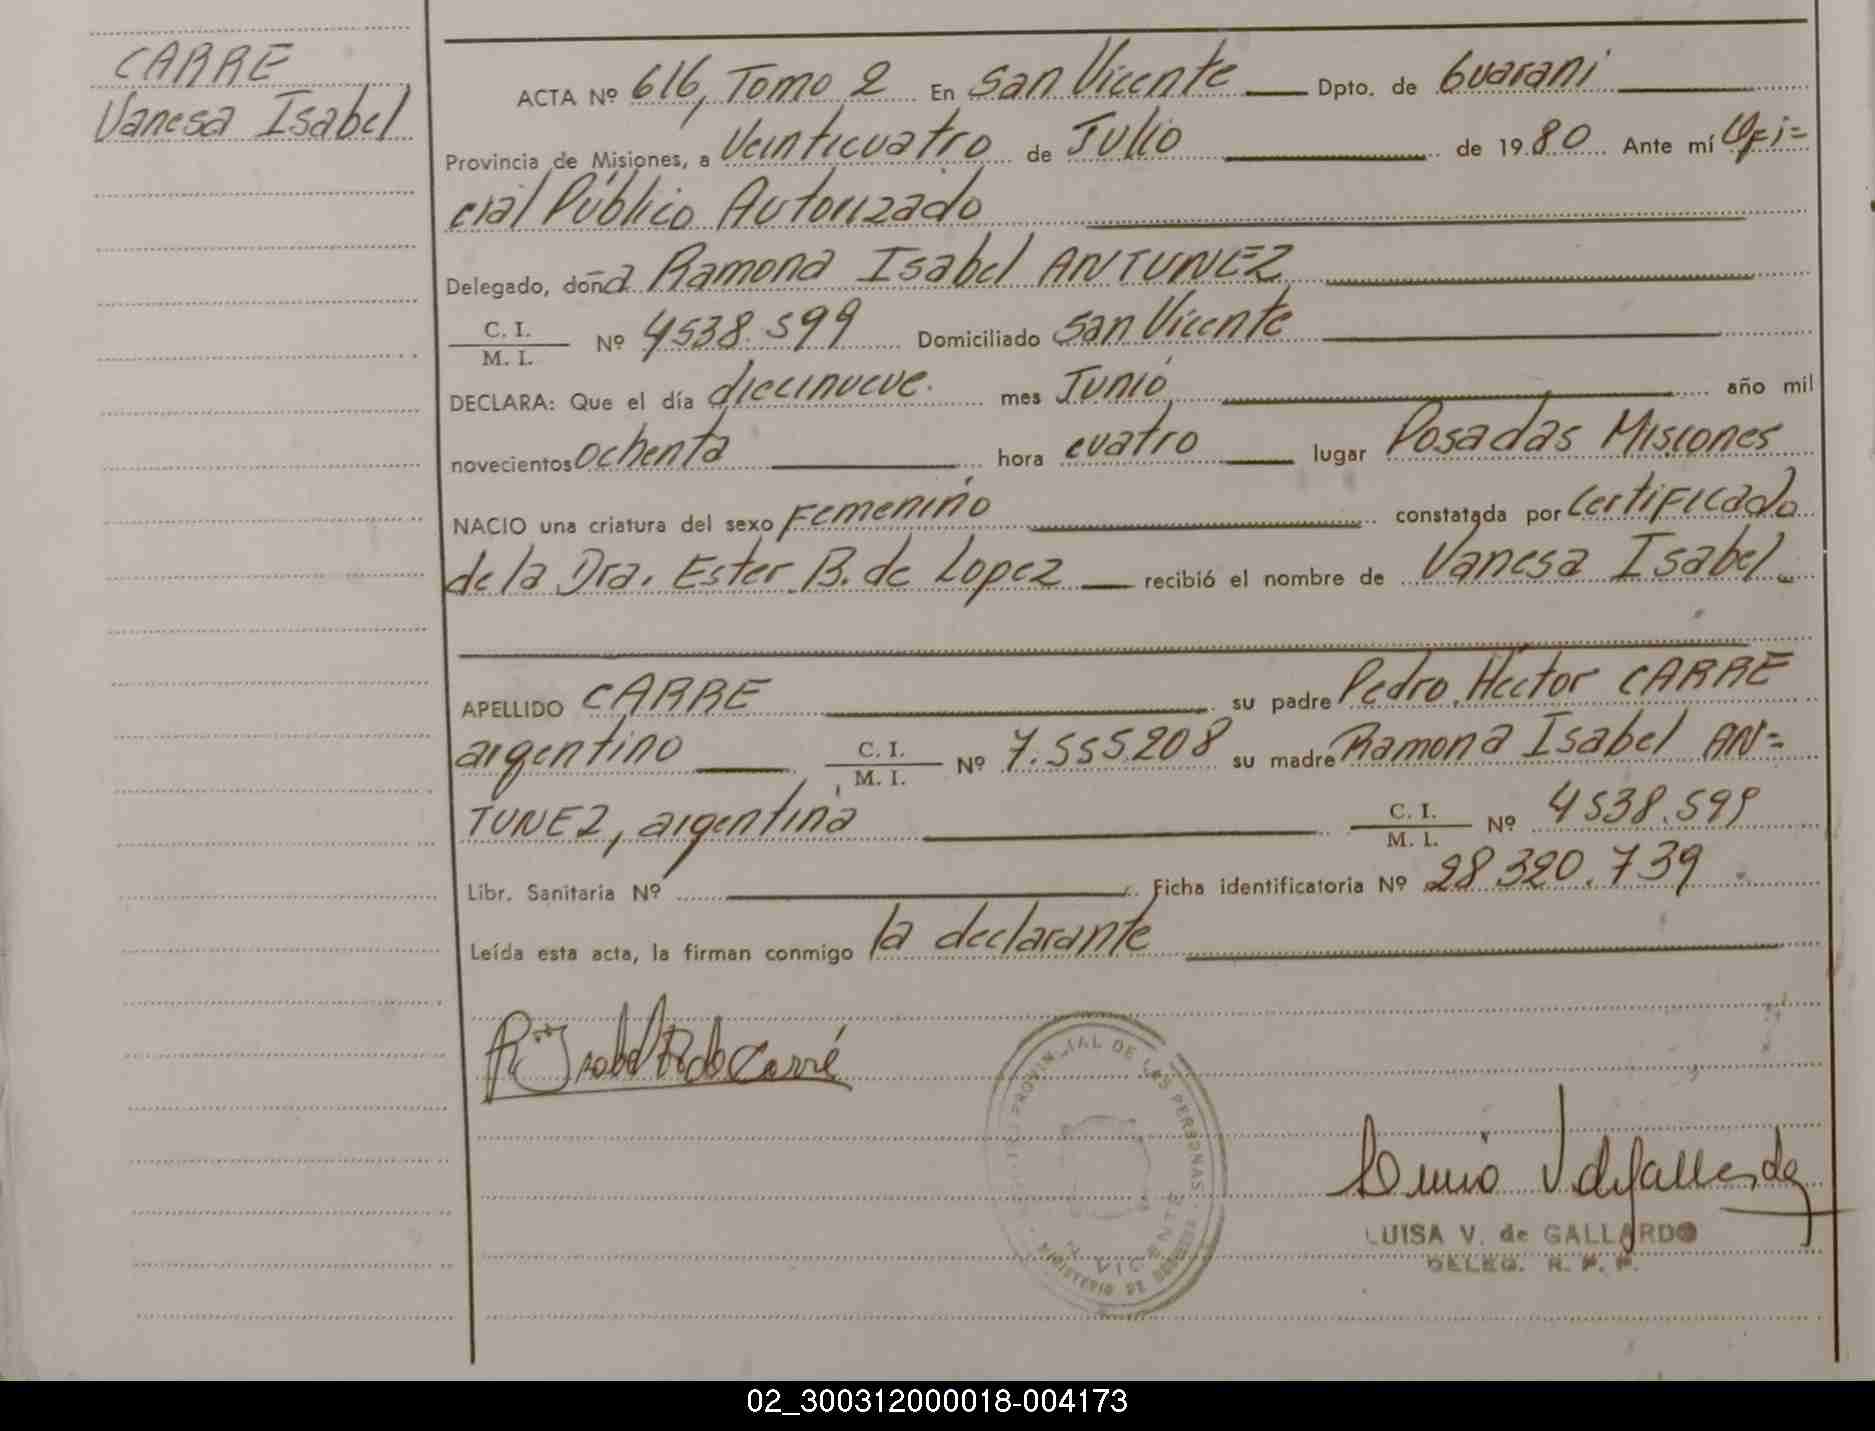 CARRE
Vanesa Isabel
ACTA Nº 616, Tomo 2 En San Vicente Dpto. de Guarani
Provincia de Misiones, a Veinticuatro de Julio de 1980 Ante mí Ofi=
cial Público Autorizado
Delegado, doña Ramona Isabel ANTUNEZ
C. I.
M. I.
Nº 4538.599 Domiciliado San Vicente
DECLARA: Que el día diecinueve mes Junio año mil
novecientos ochenta hora cuatro lugar Posadas Misiones
NACIO una criatura del sexo Femenino constatada por Certificado
de la Dra. Ester B. de Lopez recibió el nombre de Vanesa Isabel
APELLIDO CARRE su padre Pedro Héctor CARRE
argentino C. I.
M. I.
Nº 7.555.208 su madre Ramona Isabel AN=
TUNEZ, argentina C. I.
M. I.
Nº 4538.599
Libr. Sanitaria Nº Ficha identificatoria Nº 28320.739
Leída esta acta, la firman conmigo la declarante
Carré
PROVINCIAL DE LAS PERSONAS
MINISTERIO DE
VICENTE
LUISA V. de GALLARDO
DELEG. R. P. P.
02_300312000018-004173